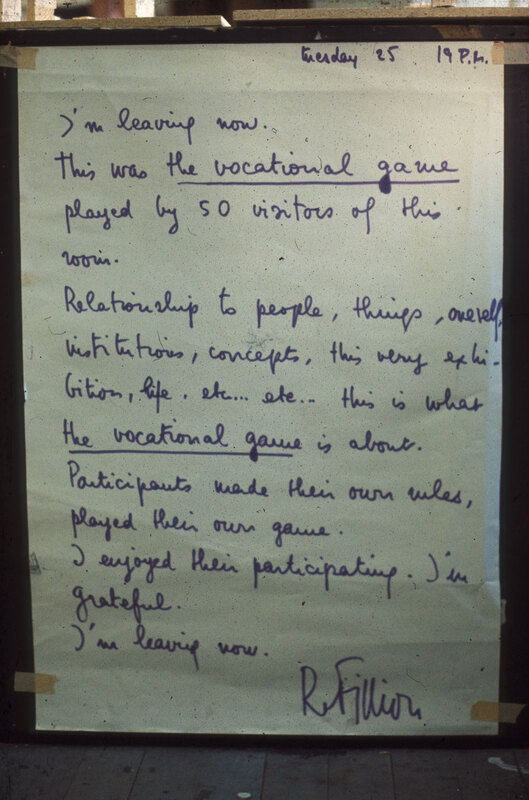 tuesday 25 19 P.M.
I'm leaving now.
This was the vocational game
played by 50 visitors of this
room.
Relationship to people, things, oneself,
institutions, concepts, this very exhi-
bition, life, etc... etc... this is what
the vocational game is about.
Participants made their own rules,
played their own game.
I enjoyed their participating. I'm
grateful.
I'm leaving now.
R. Fillion